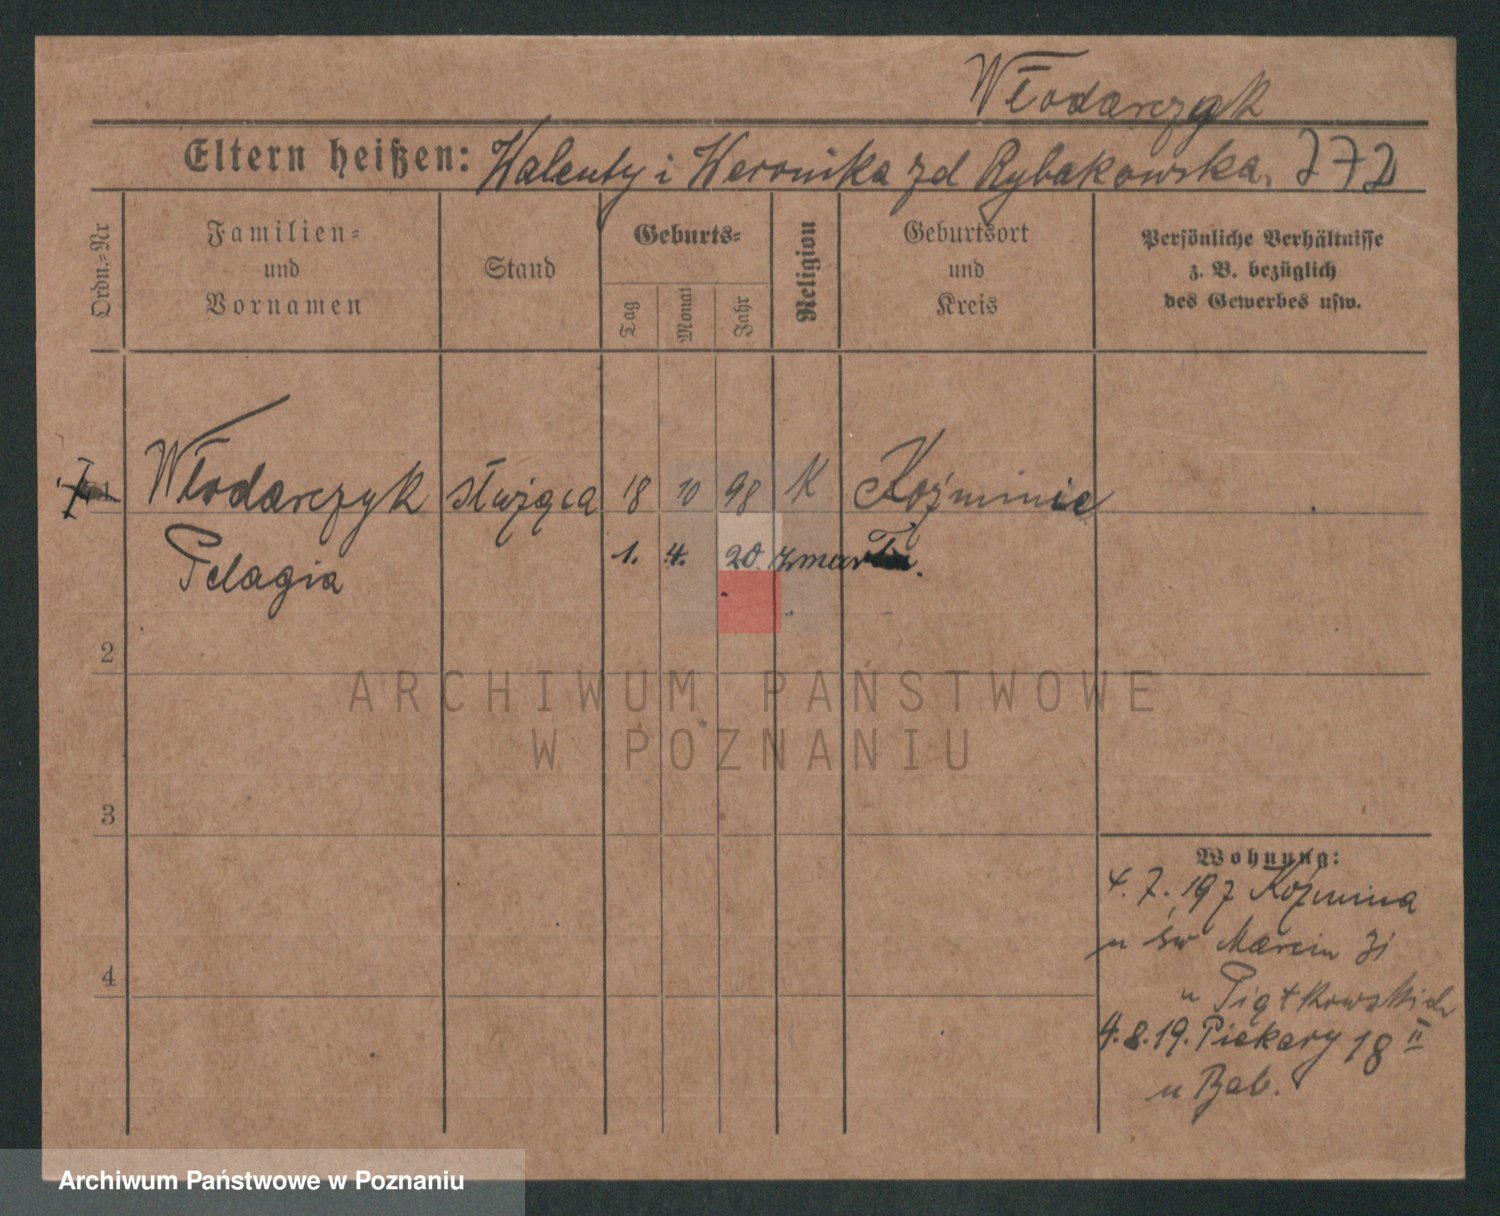 Włodarczyk
Eltern heißen: Walenty i Weronika zd Rybakowska,
Ordn.-Nr
Familien-
und
Vornamen
Stand
Geburts-
Tag
Monat
Jahr
Religion
Geburtsort
und
Kreis
Persönliche Verhältnisse
z. B. bezüglich
des Gewerbes usw.
1 Włodarczyk służąca 18 10 98 K Koźminie
Pelagia 1. 4. 20. zmarła.
2
3
4
Wohnung:
4. 7. 19 z Koźmina
u św Marcin
u Piątkowskich
4.8.19. Piekary 18 II
u Bab.
ARCHIWUM PAŃSTWOWE
W POZNANIU
Archiwum Państwowe w Poznaniu